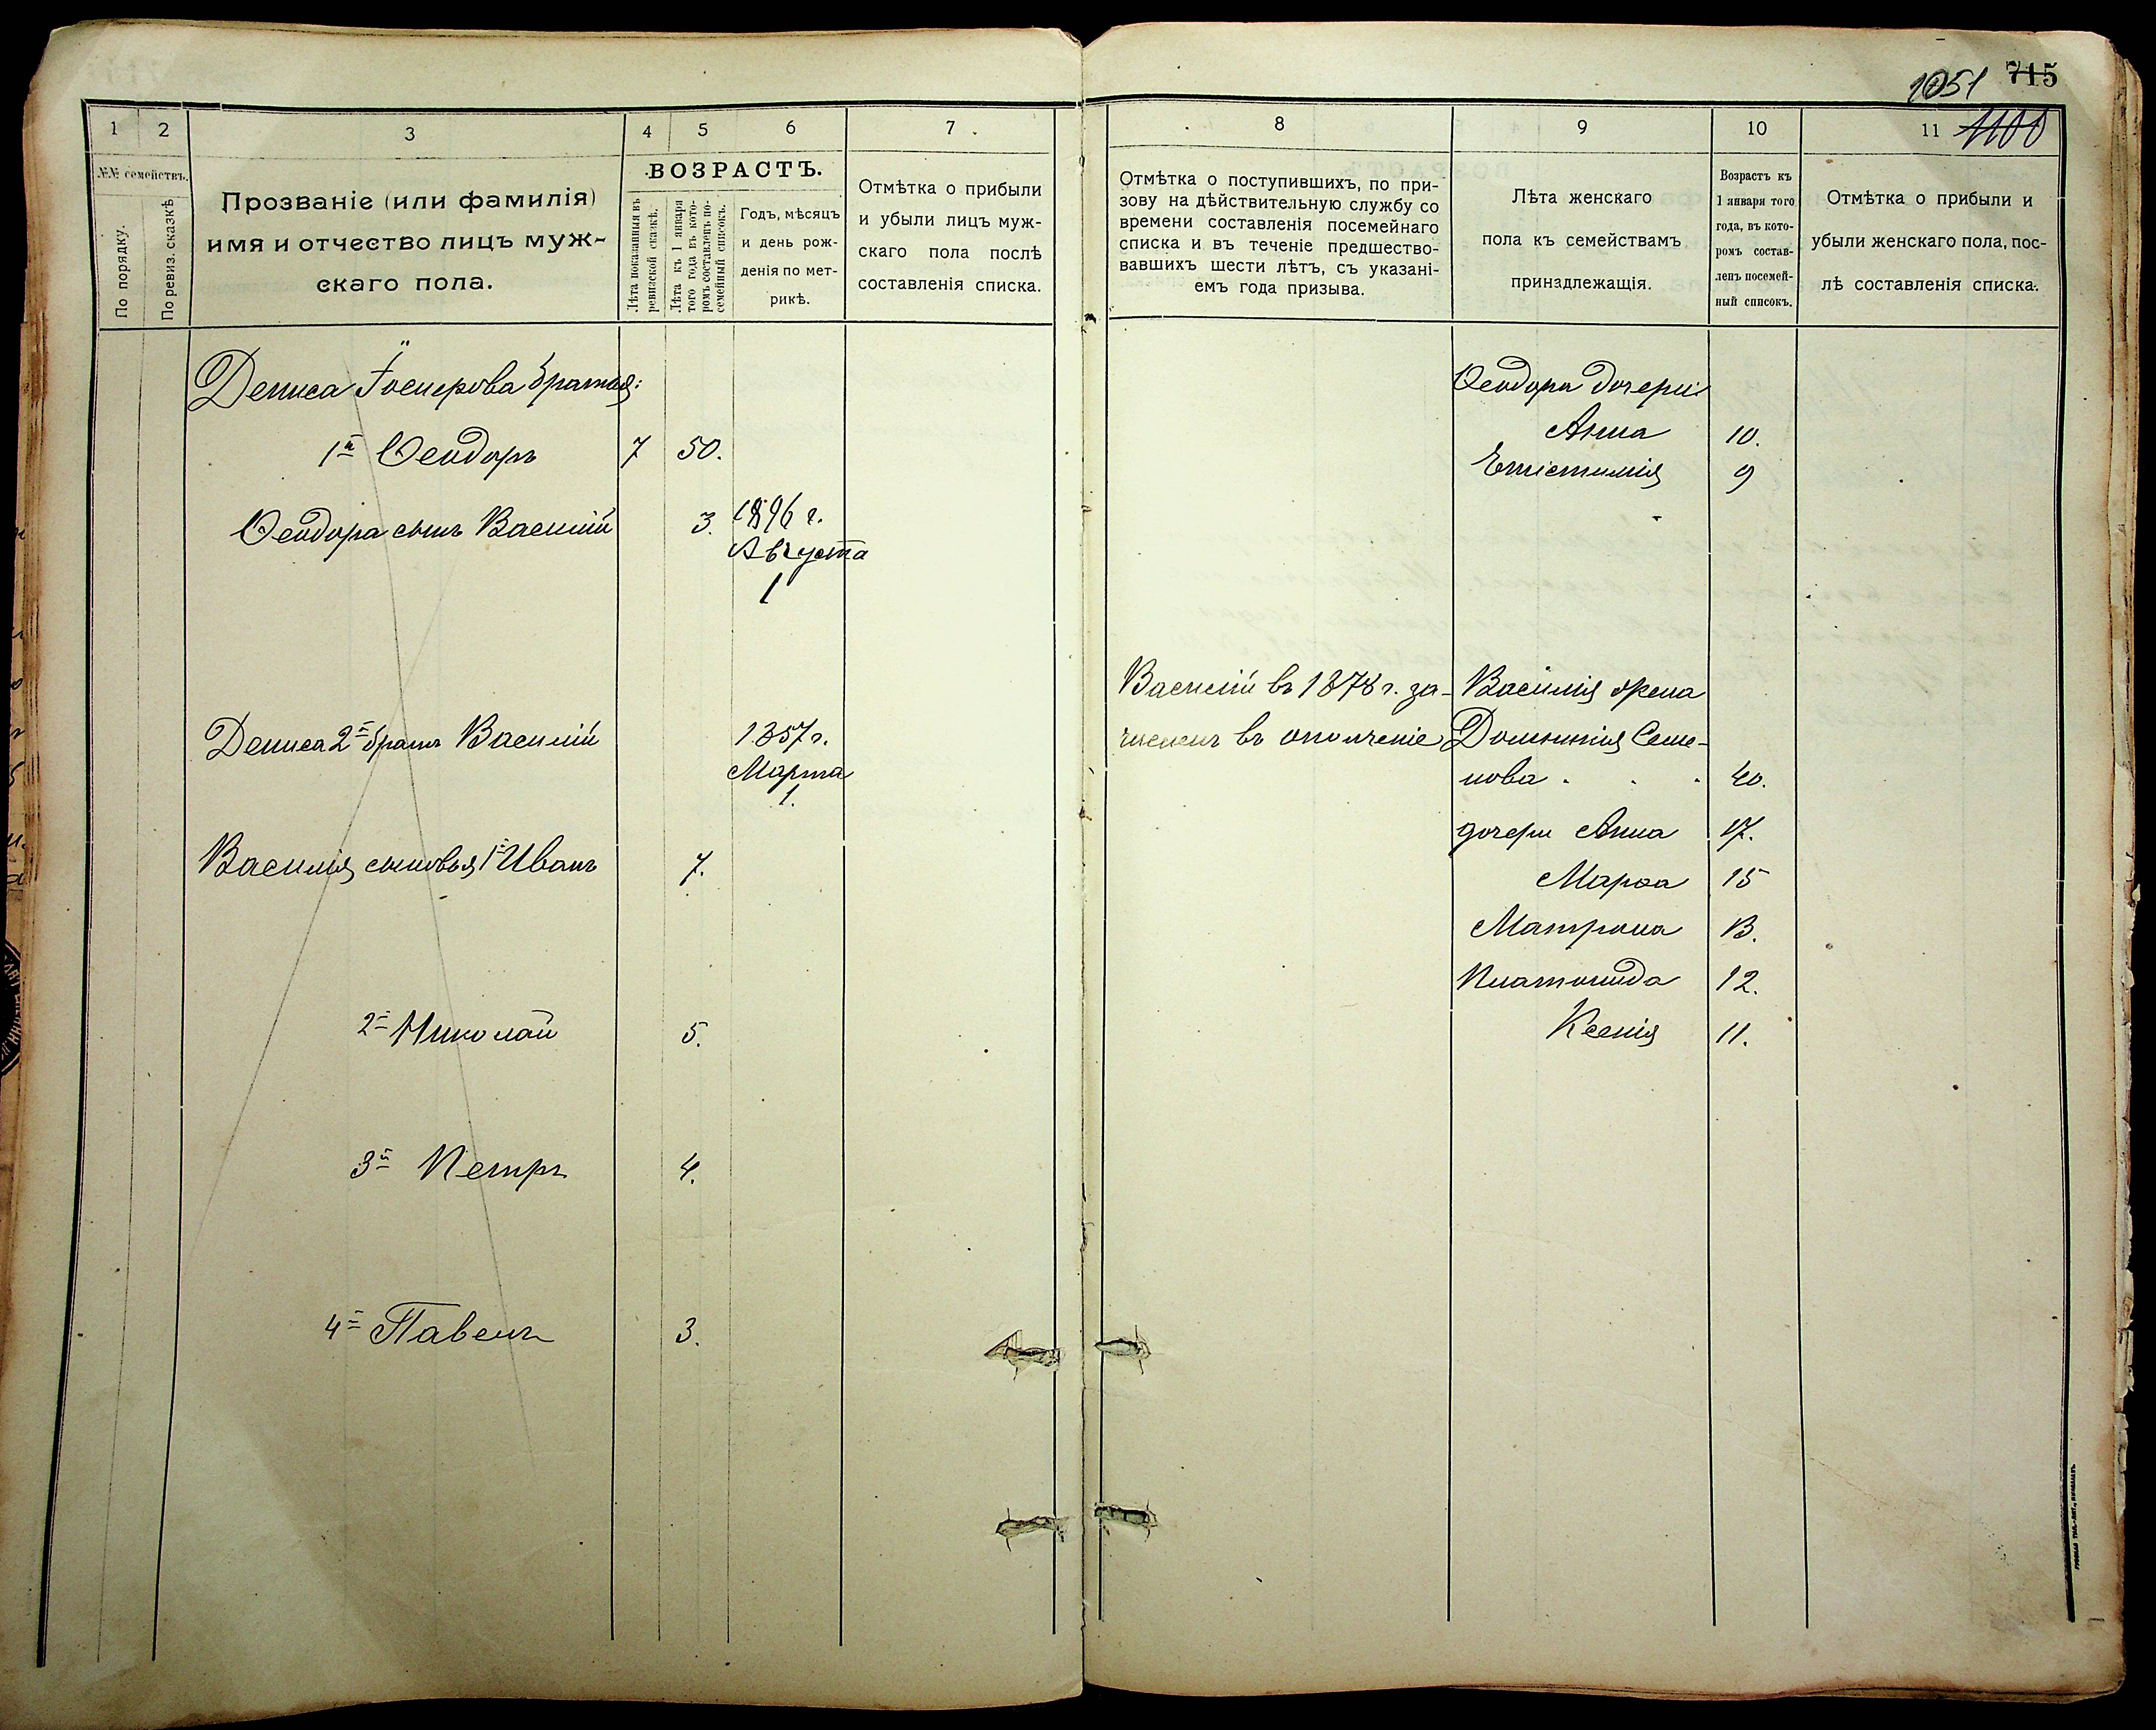 1051 715
1 2 3 4 5 6 7
№№ семействъ.
По порядку.
По ревиз. сказкѣ
Прозваніе (или фамилія)
имя и отчество лицъ муж-
скаго пола.
ВОЗРАСТЪ.
Лѣта показанныя въ
ревизской сказкѣ.
Лѣта къ 1 января
того года въ кото-
ромъ составленъ по-
семейный списокъ.
Годъ, мѣсяцъ
и день рож-
денія по мет-
рикѣ.
Отмѣтка о прибыли
и убыли лицъ муж-
скаго пола послѣ
составленія списка.
Дениса Іосифова братья:
1й Ѳеодоръ 7 50.
Ѳеодора сынъ Василій 3. 1896 г.
Августа
1
Дениса 2й братъ Василій 1857 г.
Марта
1.
Василія сыновья 1й Иванъ 7.
2й Николай 5.
3й Петръ 4.
4й Павелъ 3.
8 9 10 11 1100
Отмѣтка о поступившихъ, по при-
зову на дѣйствительную службу со
времени составленія посемейнаго
списка и въ теченіе предшество-
вавшихъ шести лѣтъ, съ указані-
емъ года призыва.
Лѣта женскаго
пола къ семействамъ
принадлежащія.
Возрастъ къ
1 января того
года, въ кото-
ромъ состав-
ленъ посемей-
ный списокъ.
Отмѣтка о прибыли и
убыли женскаго пола, пос-
лѣ составленія списка.
Ѳеодора дочери:
Анна 10.
Епистимія 9
Василій въ 1878 г. за- Василія жена
численъ въ ополченіе Домникія Семе-
нова . . . 40.
дочери Анна 17.
Марѳа 15
Матрона 13.
Платонида 12.
Ксенія 11.